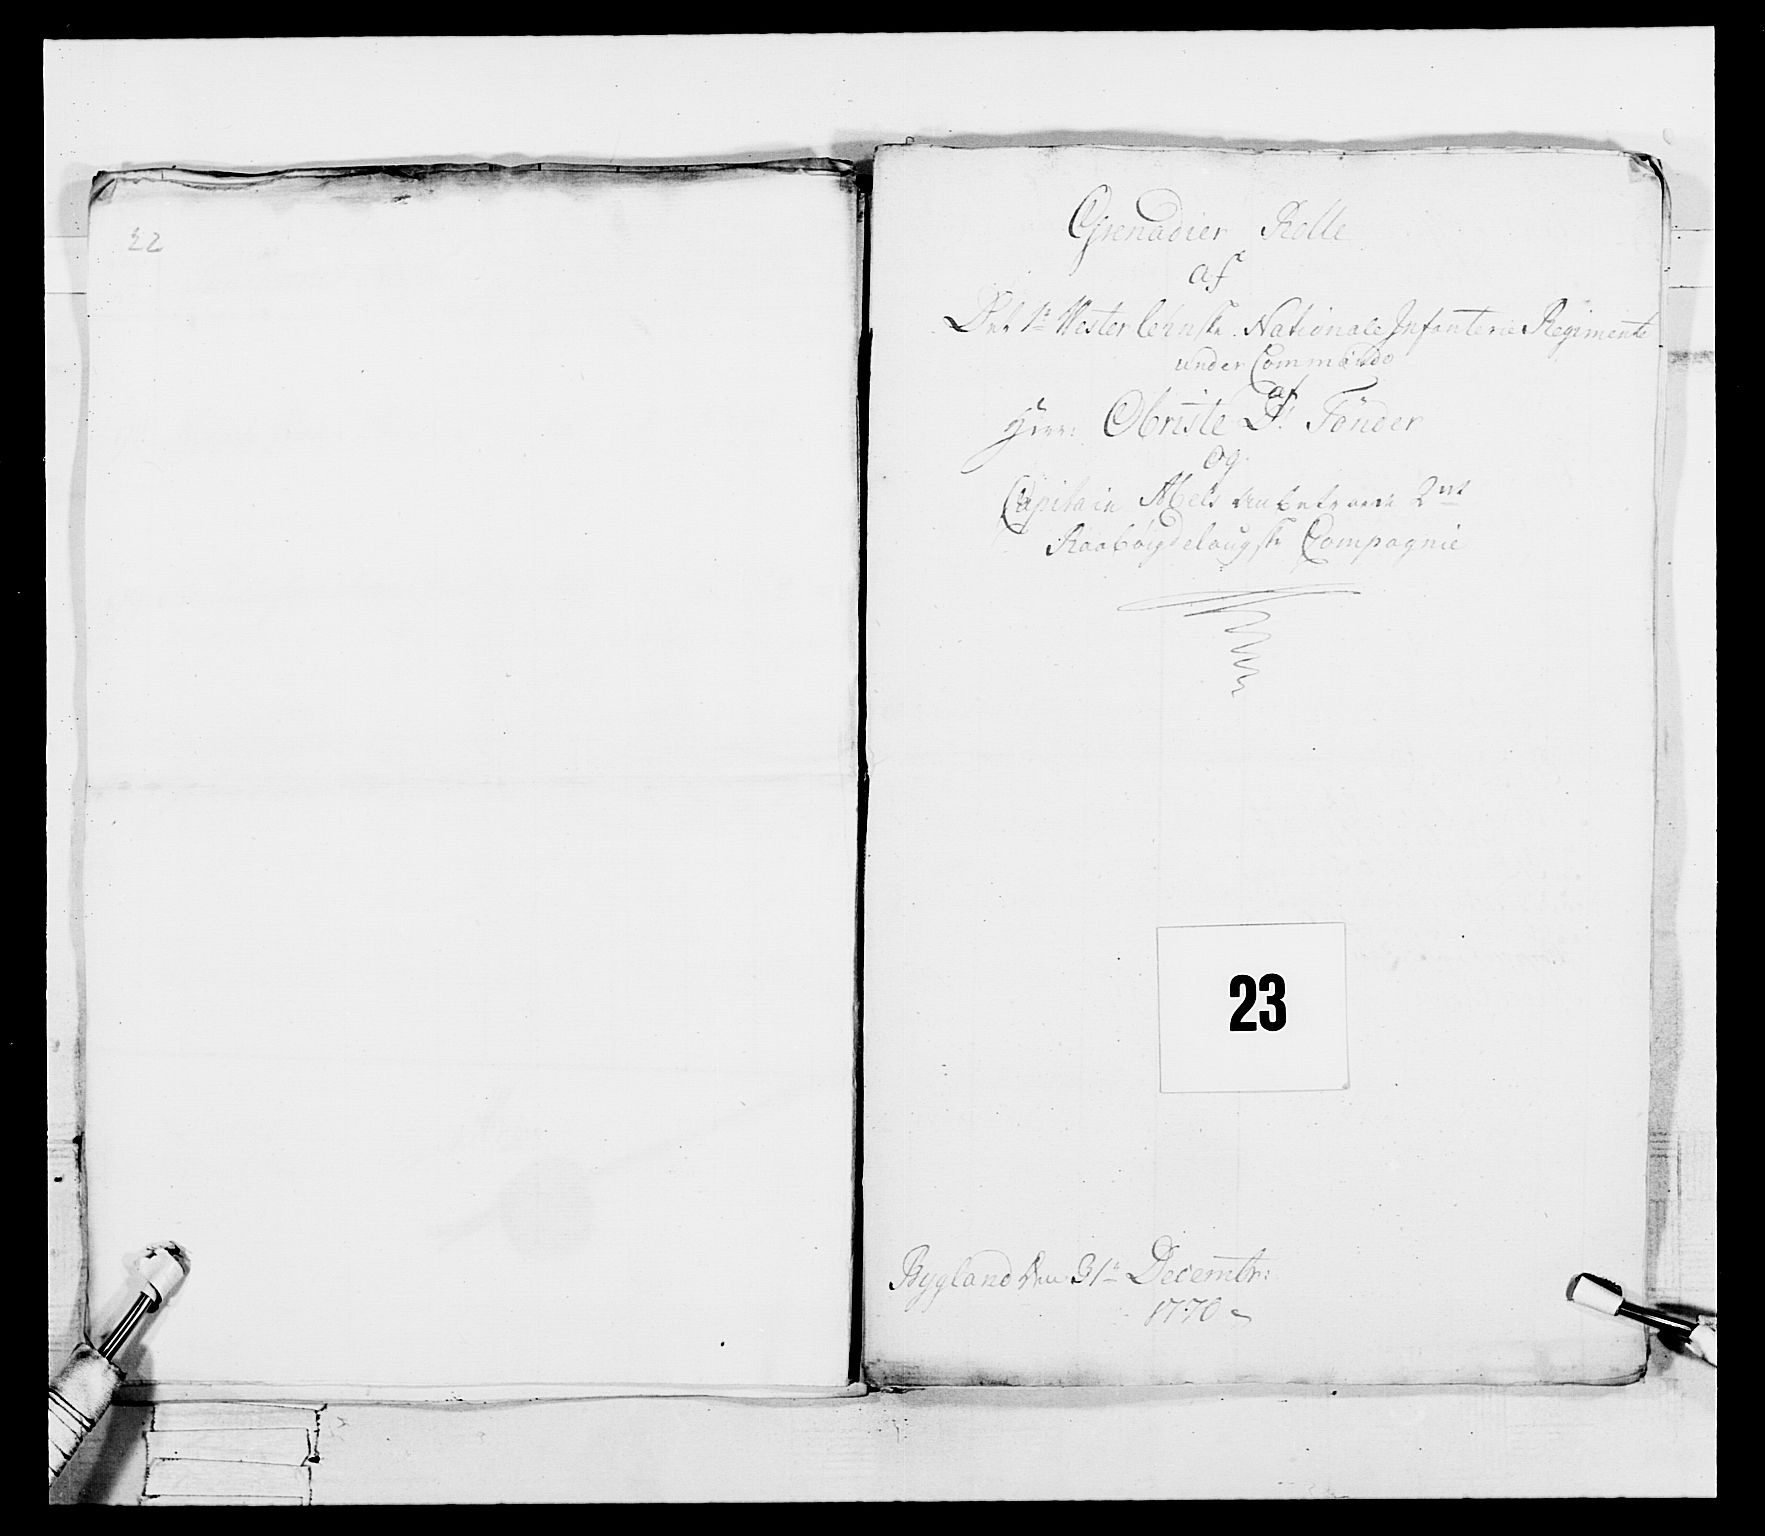 22
Grenadier Rolle
af
Det 1te Vesterlehnske Nationale Infanterie Regimente
under Commando
af
Herr: Obriste D: Tønder
og
Capitain Abels anbetroede 2net
Raabøigdelaugske Compagnie
23
Bygland den 31te Decembr:
1770